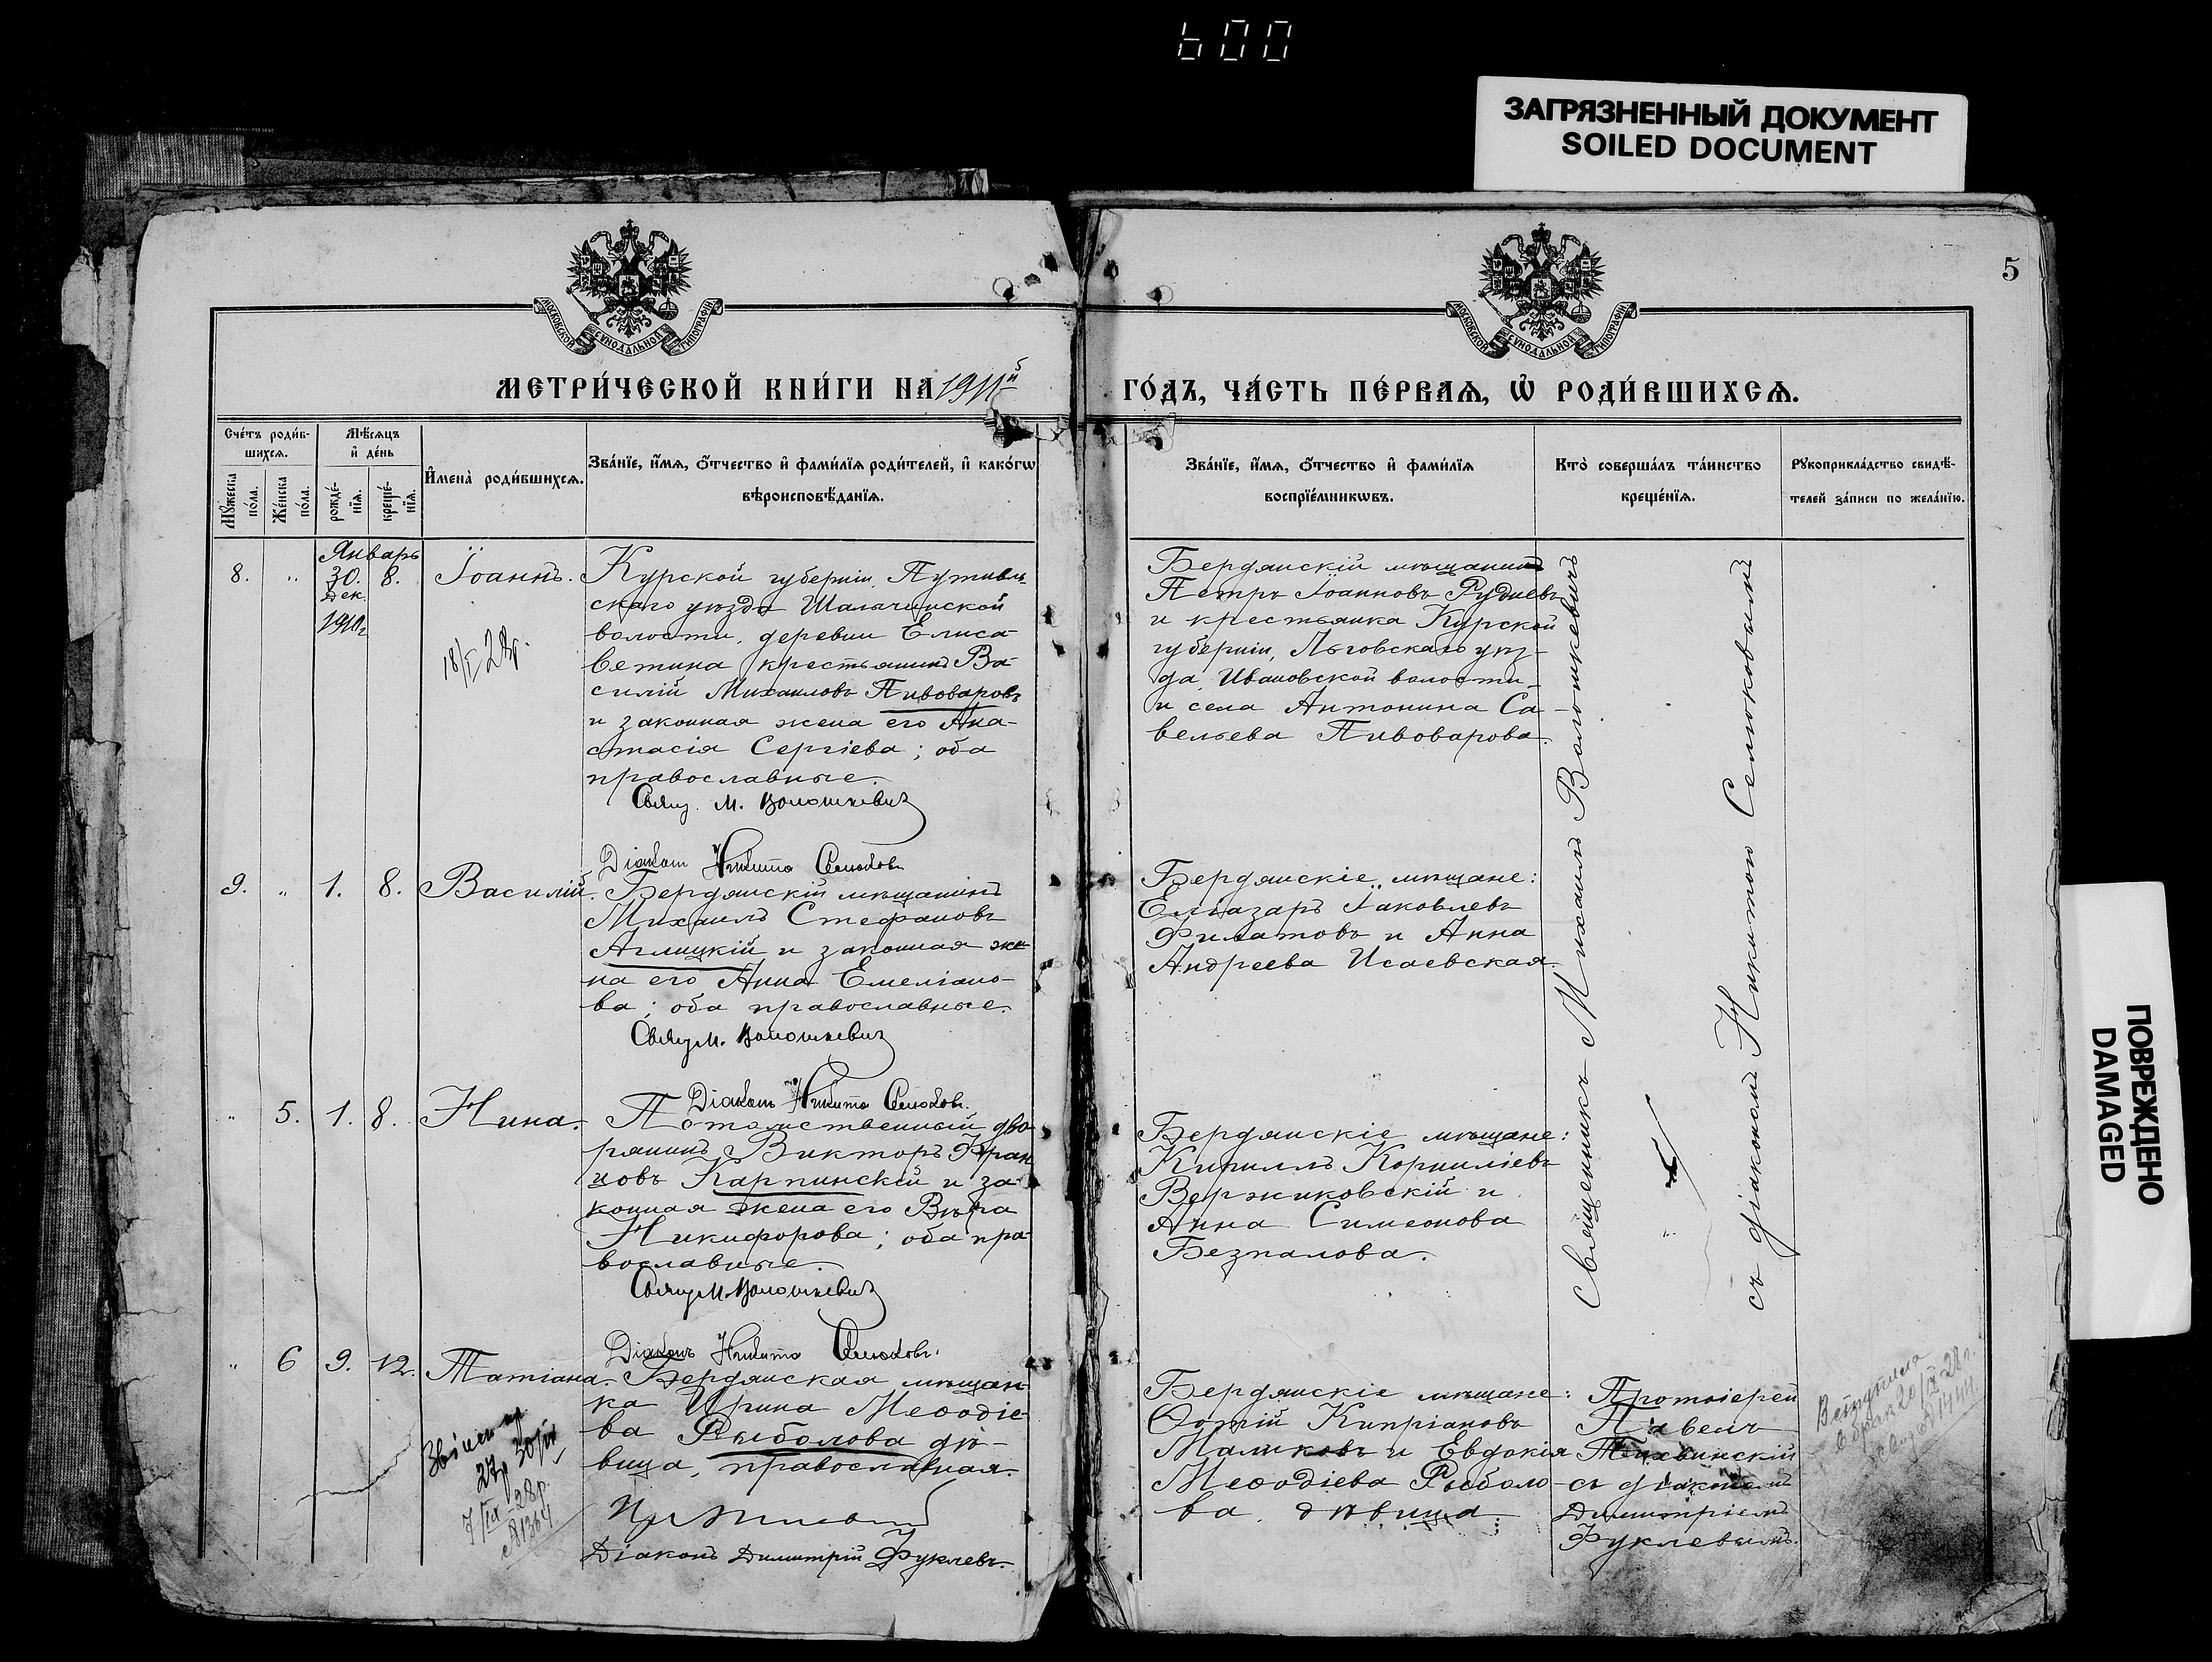 600
ЗАГРЯЗНЕННЫЙ ДОКУМЕНТ
SOILED DOCUMENT
5
МОСКОВСКОЙ СѴНОДАЛЬНОЙ ТИПОГРАФІИ
МОСКОВСКОЙ СѴНОДАЛЬНОЙ ТИПОГРАФІИ
МЕТРИ́ЧЕСКОЙ КНИ́ГИ НА 1911й
ГО́ДЪ, ЧА́СТЬ ПЕ́РВАѦ, Ѡ҆ РОДИ́ВШИХСѦ.
Сче́тъ роди́в-
шихсѧ.
Мѹ́жеска
по́ла.
Же́нска
по́ла.
Мѣ́сѧцъ
и҆ де́нь
рожде́-
нїѧ.
креще́-
нїѧ.
И҆мена̀ роди́вшихсѧ.
Зва́нїе, и҆́мѧ, ѻ҆́тчество и҆ фами́лїѧ роди́телей, и҆ како́гѡ
вѣроисповѣ́данїѧ.
Зва́нїе, и҆́мѧ, ѻ҆́тчество и҆ фами́лїѧ
воспрїе́мникѡвъ.
Кто̀ соверша́лъ та́инство
креще́нїѧ.
Рѹкоприкла́дство свидѣ́-
телей за́писи по жела́нїю.
Январь
8.
"
30.
Дек.
1910г
8.
Іоаннъ.
18/I 28р.
Курской губерніи, Путивль
скаго уѣзда Шалыгинской
волости, деревни Елиса-
ветина крестьянинъ Ва-
силій Михаиловъ Пивоваровъ
и законная жена его Ана-
стасія Сергіева; оба
православные.
Свящ. М. Волошкевичъ
Діаконъ Никита Селюковъ
Бердянскій мѣщанинъ
Петръ Іоанновъ Рудневъ
и крестьянка Курской
губерніи, Льговскаго уѣз-
да, Ивановской волости
и села Антонина Са-
вельева Пивоварова.
Священникъ Михаилъ Волошкевичъ
съ діакономъ Никитою Селюковымъ
9.
"
1.
8.
Василій.
Бердянскій мѣщанинъ
Михаилъ Стефановъ
Аглицкій и законная же-
на его Анна Емеліано-
ва; оба православные.
Свящ М. Волошкевичъ
Діаконъ Никита Селюковъ.
Бердянскіе мѣщане:
Елеазаръ Іаковлевъ
Филатовъ и Анна
Андреева Исаевская.
"
5.
1.
8.
Нина.
Потомственный дво-
рянинъ Викторъ Фран
цовъ Карпинскій и за-
конная жена его Вѣра
Никифорова; оба пра-
вославные.
Свящ М. Волошкевичъ
Діаконъ Никита Селюковъ.
Бердянскіе мѣщане:
Кириллъ Корниліевъ
Вержиковскій и
Анна Симеонова
Безпалова.
"
6
9.
12.
Татіана.
27р 30/IV
7/IX 28р.
№1364
Бердянская мѣщан-
ка Ирина Меѳодіе-
ва Рыболова дѣ-
вица, православная.
Діаконъ Димитрій Фуклевъ.
Бердянскіе мѣщане:
Ѳотій Кипріановъ
Маликовъ и Евдокія
Меѳодіева Рыболо-
ва, дѣвица.
Протоіерей
Павелъ
Тихвинскій
съ діакономъ
Димитріемъ
Фуклевымъ.
Вступила
в брак 20/IX-28г.
№1444
ПОВРЕЖДЕНО
DAMAGED